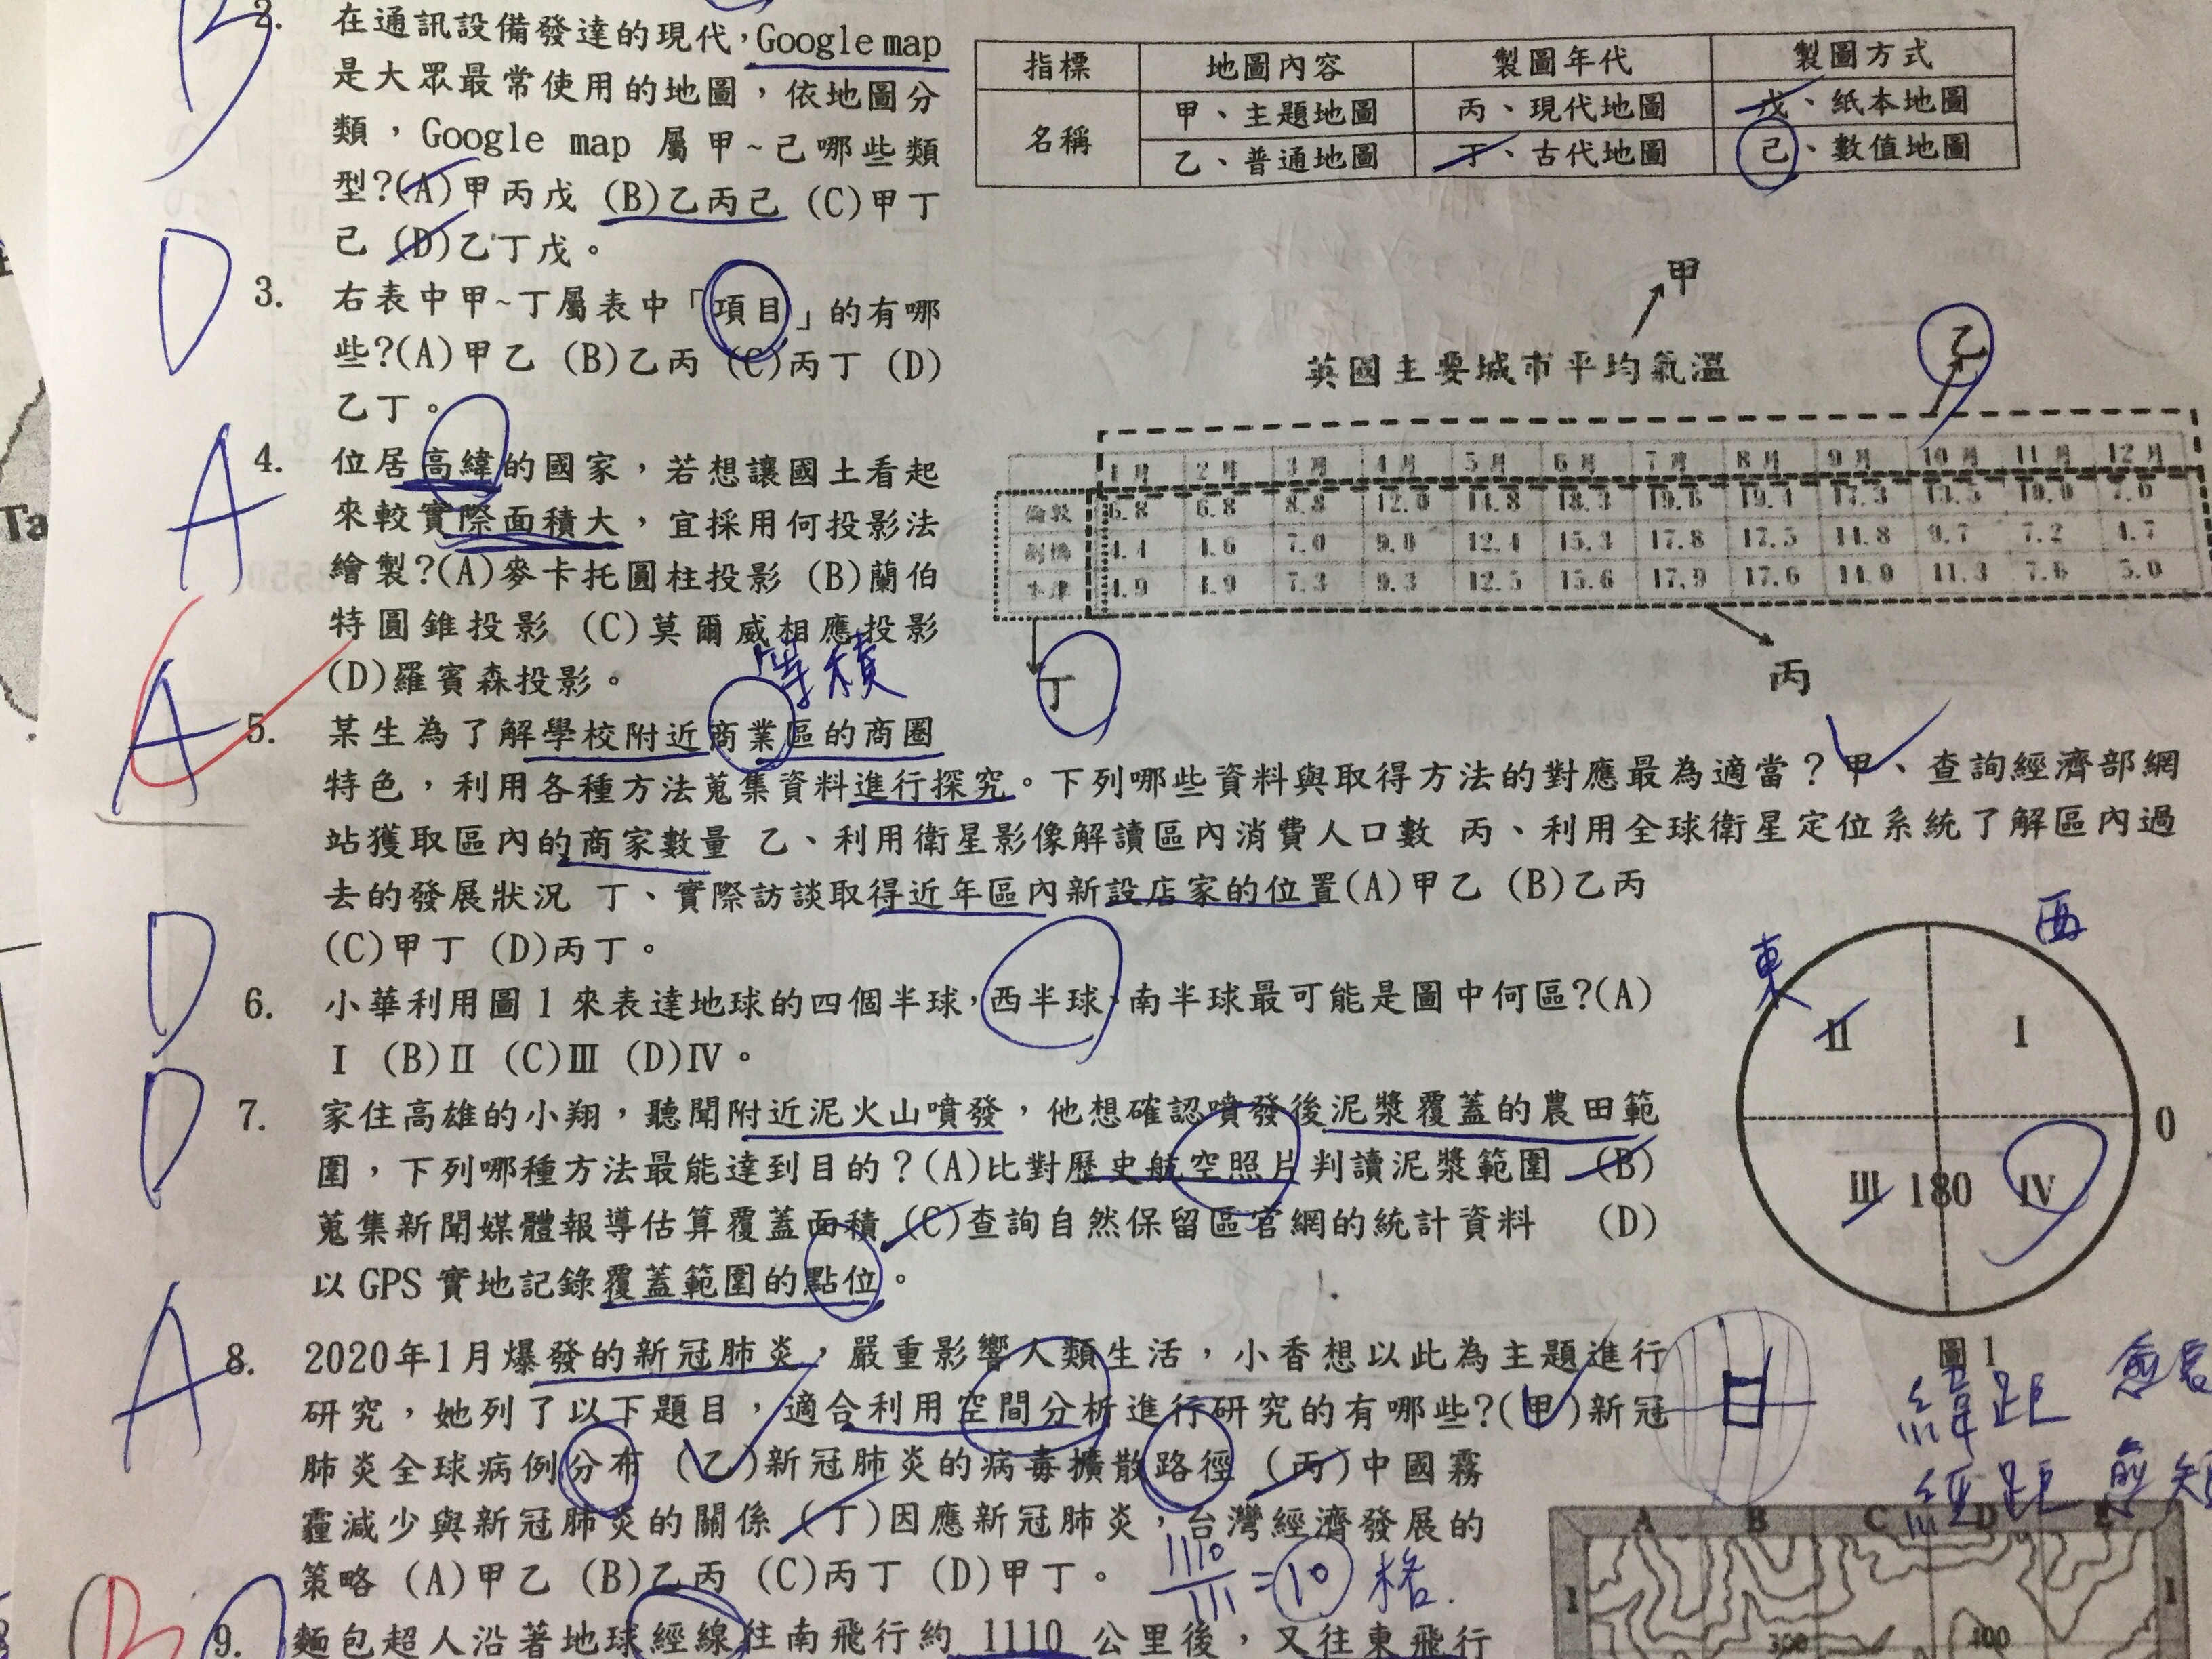 2. 在通訊設備發達的現代，Google map
是大眾最常使用的地圖，依地圖分
類，Google map 屬甲~己哪些類
型?(A)甲丙戊 (B)乙丙己 (C)甲丁
己 (D)乙丁戊。
指標 地圖內容 製圖年代 製圖方式
名稱 甲、主題地圖 丙、現代地圖 戊、紙本地圖
乙、普通地圖 丁、古代地圖 己、數值地圖
B
D
3. 右表中甲~丁屬表中「項目」的有哪
些?(A)甲乙 (B)乙丙 (C)丙丁 (D)
乙丁。
甲
英國主要城市平均氣溫
乙
1月 2月 3月 4月 5月 6月 7月 8月 9月 10月 11月 12月
倫敦 6.8 8.8 12.0 14.8 18.3 19.6 19.4 17.3 13.5 10.0 7.0
劍橋 4.4 4.6 7.0 9.0 12.4 15.3 17.8 17.5 14.8 9.7 7.2 4.7
牛津 4.9 4.9 7.3 9.3 12.5 15.6 17.9 17.6 14.9 11.3 7.6 5.0
丁
丙
A
4. 位居高緯的國家，若想讓國土看起
來較實際面積大，宜採用何投影法
繪製?(A)麥卡托圓柱投影 (B)蘭伯
特圓錐投影 (C)莫爾威相應投影
(D)羅賓森投影。
等積
A
5. 某生為了解學校附近商業區的商圈
特色，利用各種方法蒐集資料進行探究。下列哪些資料與取得方法的對應最為適當？甲、查詢經濟部網
站獲取區內的商家數量 乙、利用衛星影像解讀區內消費人口數 丙、利用全球衛星定位系統了解區內過
去的發展狀況 丁、實際訪談取得近年區內新設店家的位置(A)甲乙 (B)乙丙
(C)甲丁 (D)丙丁。
D
6. 小華利用圖1來表達地球的四個半球，西半球、南半球最可能是圖中何區?(A)
I (B)Ⅱ (C)Ⅲ (D)Ⅳ。
東
西
Ⅱ I
0
Ⅲ 180 Ⅳ
圖1
D
7. 家住高雄的小翔，聽聞附近泥火山噴發，他想確認噴發後泥漿覆蓋的農田範
圍，下列哪種方法最能達到目的？(A)比對歷史航空照片判讀泥漿範圍 (B)
蒐集新聞媒體報導估算覆蓋面積 (C)查詢自然保留區官網的統計資料 (D)
以 GPS 實地記錄覆蓋範圍的點位。
A
8. 2020年1月爆發的新冠肺炎，嚴重影響人類生活，小香想以此為主題進行
研究，她列了以下題目，適合利用空間分析進行研究的有哪些?(甲)新冠
肺炎全球病例分布 (乙)新冠肺炎的病毒擴散路徑 (丙)中國霧
霾減少與新冠肺炎的關係 (丁)因應新冠肺炎，台灣經濟發展的
策略 (A)甲乙 (B)乙丙 (C)丙丁 (D)甲丁。
緯距 愈長
經距 愈短
1110/111=10 格.
B
9. 麵包超人沿著地球經線往南飛行約 1110 公里後，又往東飛行
A B C D E
1 1
300 400